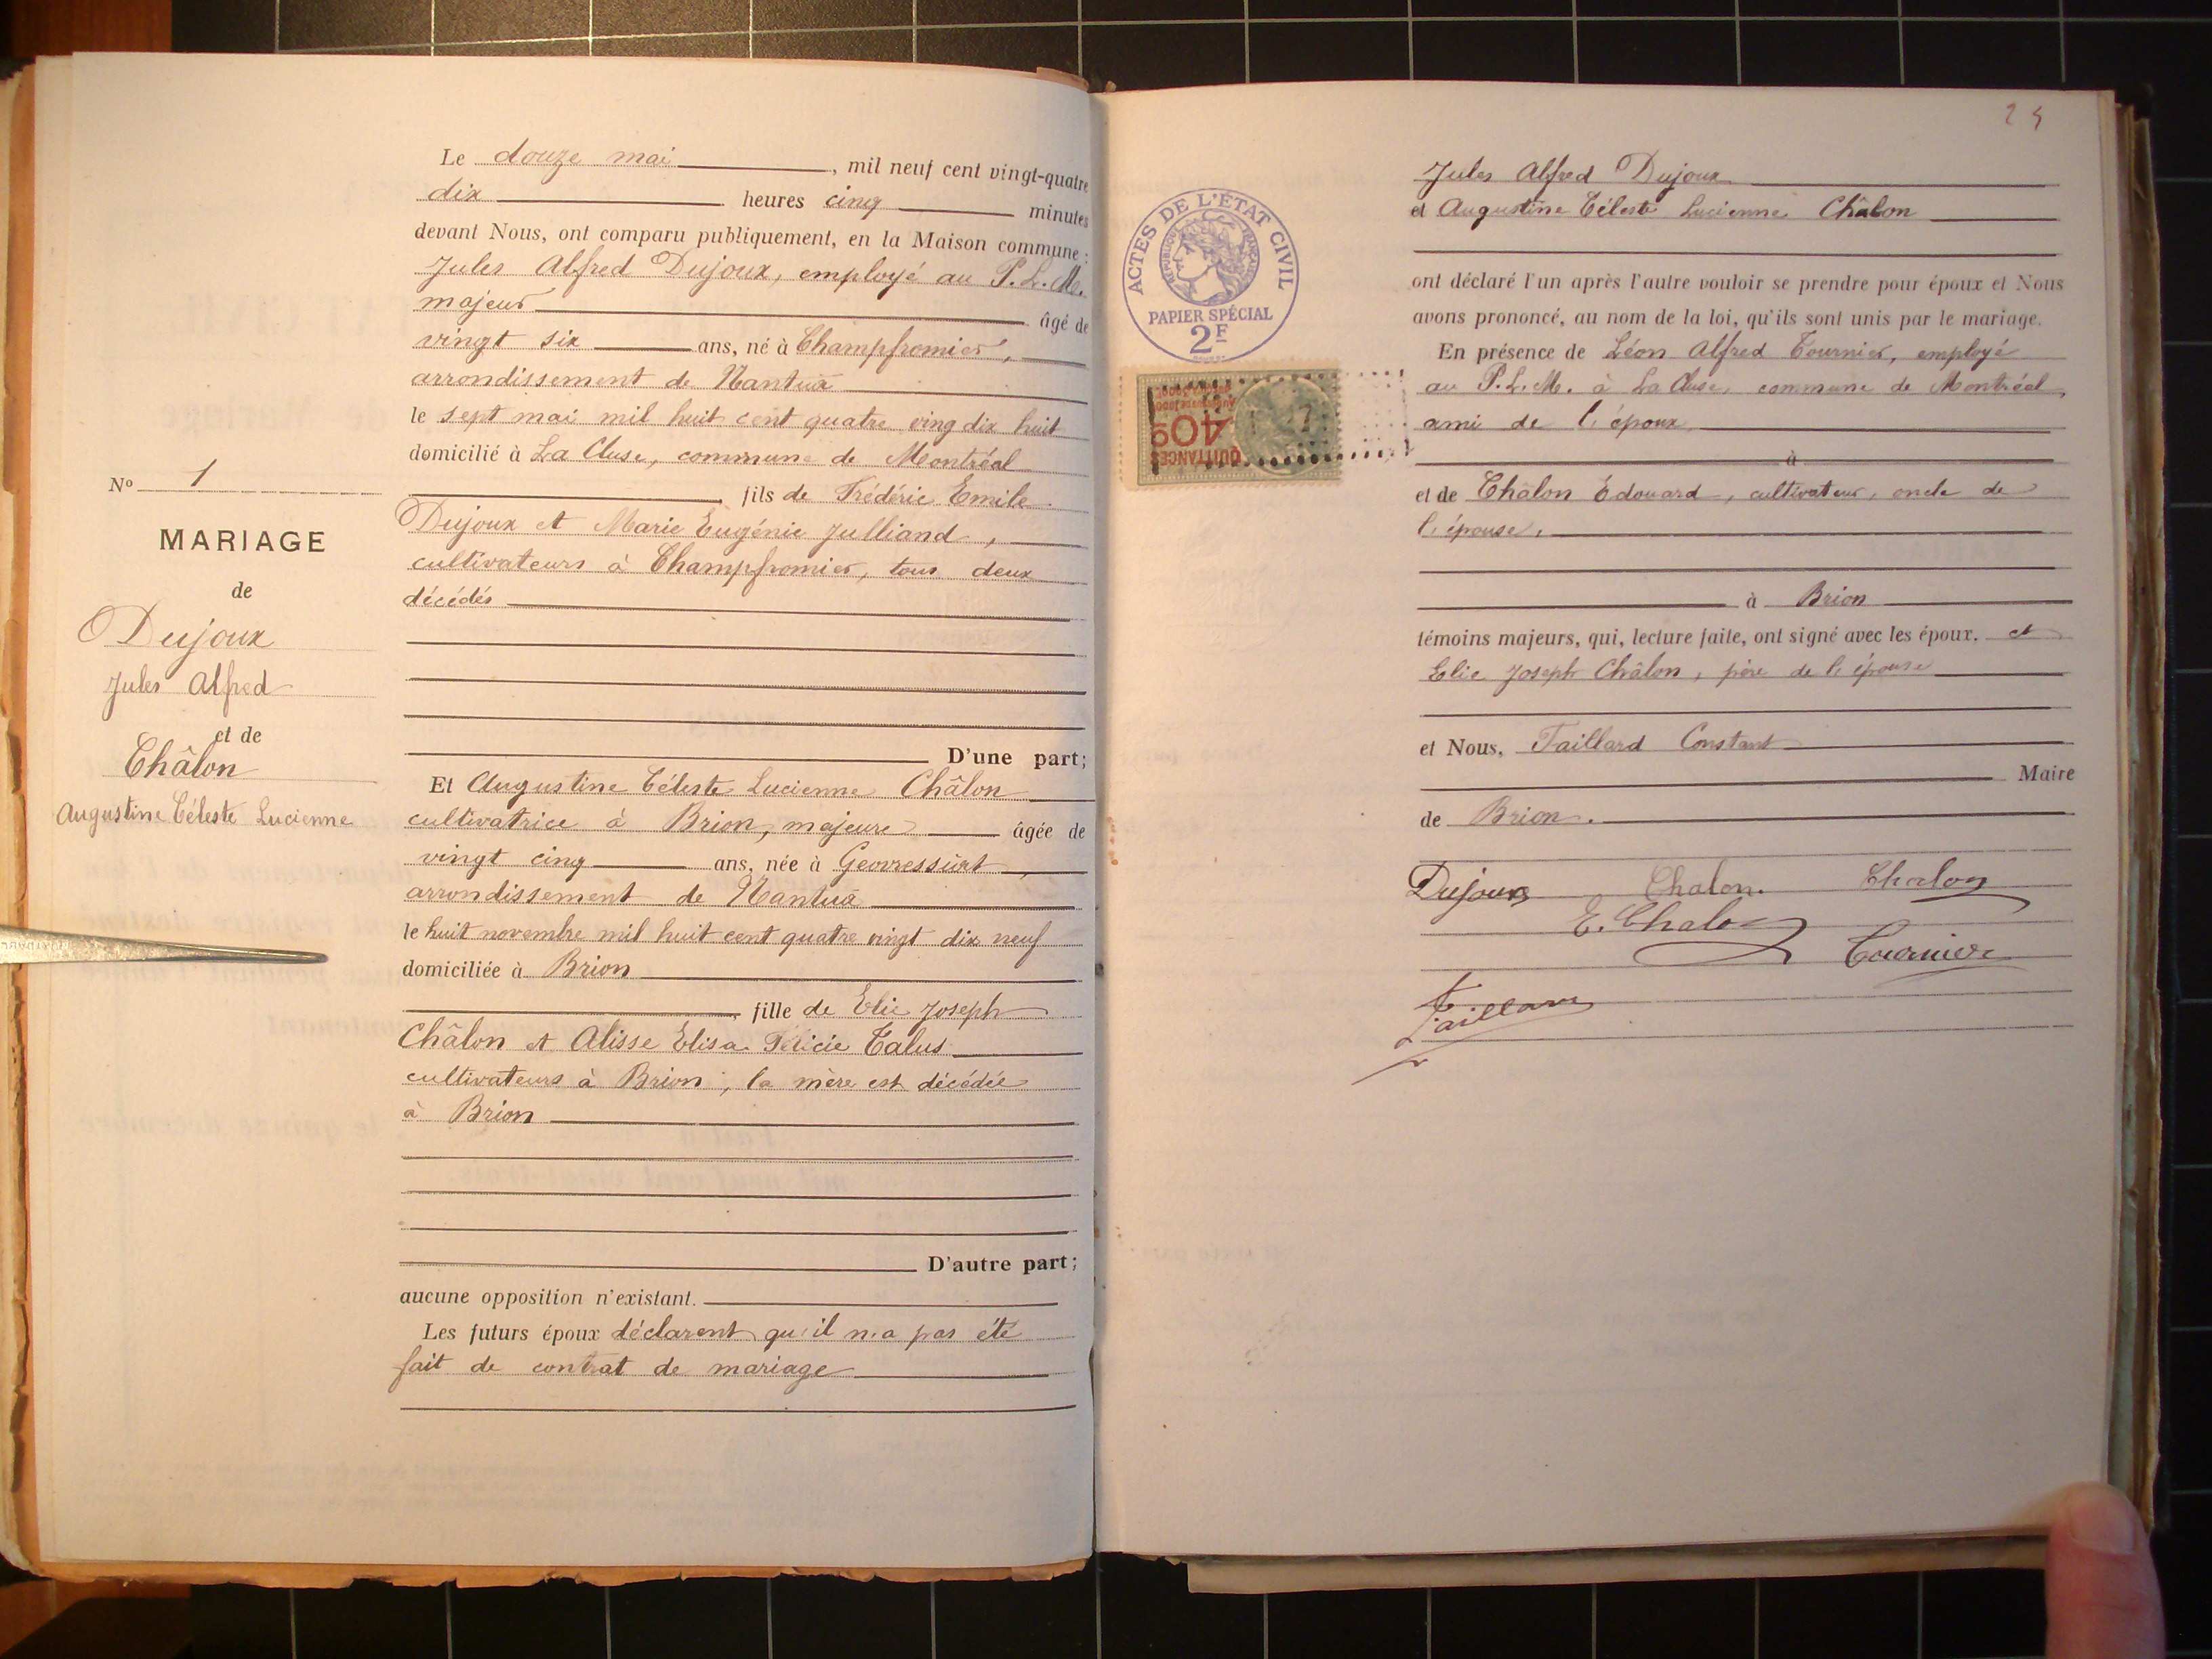 Le douze mai, mil neuf cent vingt-quatre
dix heures cinq minutes
devant Nous, ont comparu publiquement, en la Maison commune :
Jules Alfred Dujoux, employé au P. L. M.
majeur âgé de
vingt six ans, né à Champfromier,
arrondissement de Nantua
le sept mai mil huit cent quatre ving dix huit
domicilié à La Cluse, commune de Montréal
fils de Frédéric Emile
Dujoux et Marie Eugénie Julliand,
cultivateurs à Champfromier, tous deux
décédés
D'une part;
Et Augustine Céleste Lucienne Châlon
cultivatrice à Brion, majeure âgée de
vingt cinq ans, née à Geovressiat,
arrondissement de Nantua
le huit novembre mil huit cent quatre vingt dix neuf
domiciliée à Brion
fille de Elie Joseph
Châlon et Alisse Elisa Félicie Talus
cultivateurs à Brion, la mère est décédée
à Brion
D'autre part;
aucune opposition n'existant.
Les futurs époux déclarent qu'il n'a pas été
fait de contrat de mariage
No 1
MARIAGE
de
Dujoux
Jules Alfred
et de
Châlon
Augustine Céleste Lucienne
ACTES DE L'ÉTAT CIVIL
RÉPUBLIQUE FRANÇAISE
PAPIER SPÉCIAL
2F
QUITTANCES
Jules Alfred Dujoux
et Augustine Céleste Lucienne Châlon
ont déclaré l'un après l'autre vouloir se prendre pour époux et Nous
avons prononcé, au nom de la loi, qu'ils sont unis par le mariage.
En présence de Léon Alfred Tournier, employé
au P. L. M. à La Cluse, commune de Montréal,
ami de l'époux
à
et de Châlon Edouard, cultivateur, oncle de
l'épouse,
à Brion
témoins majeurs, qui, lecture faite, ont signé avec les époux. et
Elie Joseph Châlon, père de l'épouse
et Nous, Taillard Constant
Maire
de Brion.
Dujoux Chalon. Chalon
E. Chalon
Tournier
Taillard